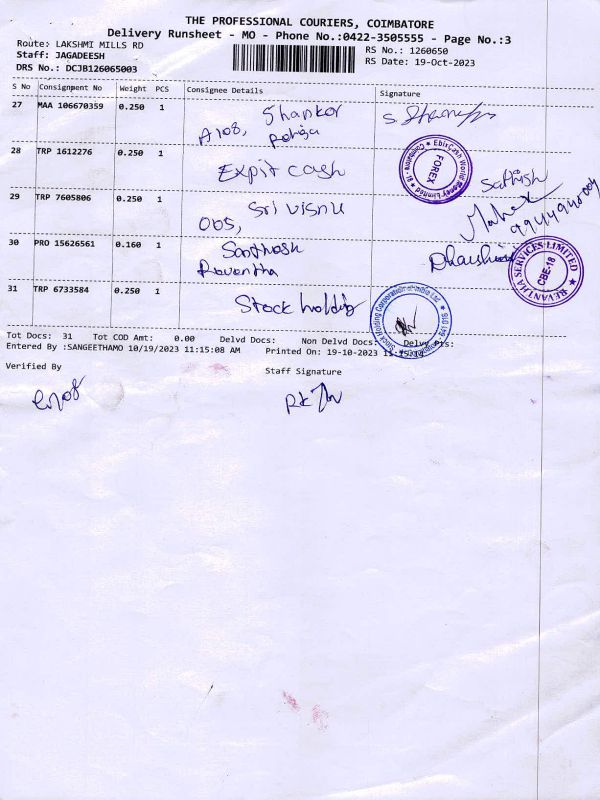 THE PROFESSIONAL COURIERS, COIMBATORE
Delivery Runsheet - MO - Phone No.:0422-3505555 - Page No.:3
Route: LAKSHMI MILLS RD
RS No.: 1260650
Staff: JAGADEESH
RS Date: 19-Oct-2023
DRS No.: DCJB126065003
S No Consignment No Weight PCS Consignee Details Signature
27 MAA 106670359 0.250 1 Shankar
A108,
28 TRP 1612276 0.250 1 Expit cash
FOREX
Sathish
29 TRP 7605806 0.250 1 Sri visnu
005,
30 PRO 15626561 0.160 1 Santhosh
Ravantha
REVANTHA SERVICES LIMITED
CBE-18
31 TRP 6733584 0.250 1 Stock holding
Stock Holding Corporation of India Ltd
Tot Docs: 31 Tot COD Amt: 0.00 Delvd Docs: Non Delvd Docs: Delvy Pts:
Entered By :SANGEETHAMO 10/19/2023 11:15:08 AM Printed On: 19-10-2023
Verified By
Staff Signature